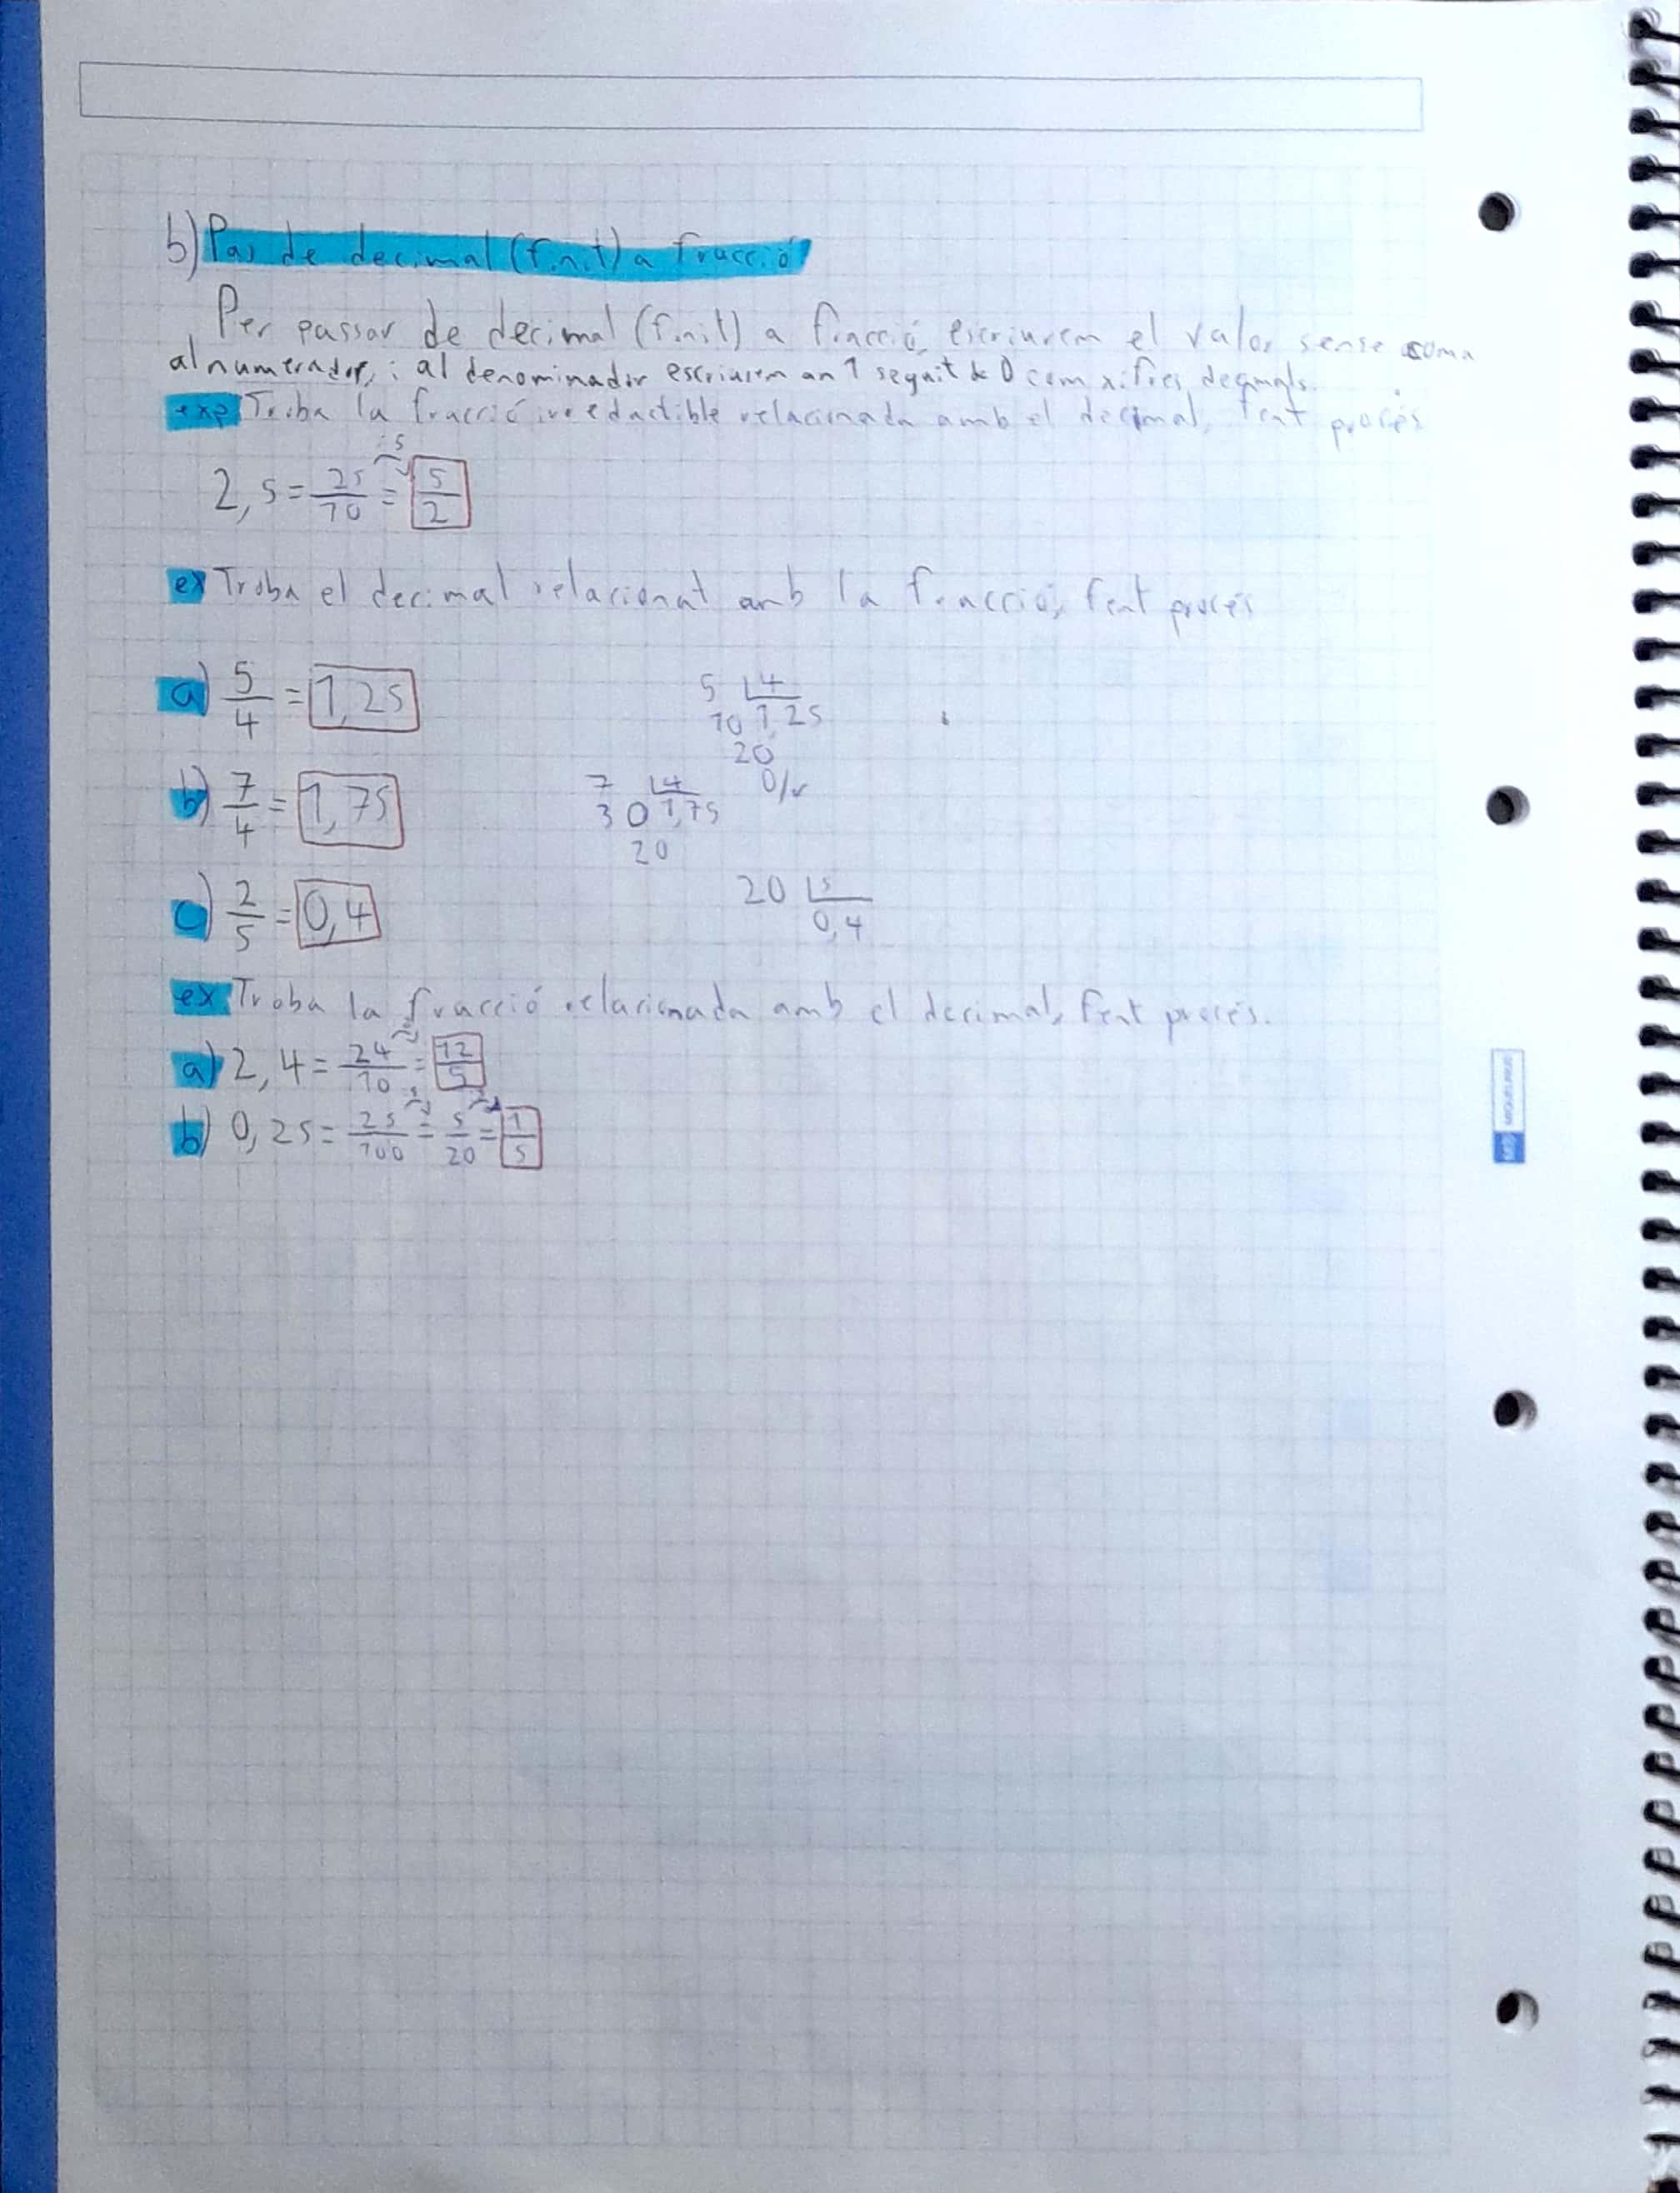 b) Pas de decimal (finit) a fracció
Per passar de decimal (finit) a fracció, escriurem el valor sense coma
al numerador, i al denominador escriurem un 1 seguit de 0 com xifres decimals.
exp Troba la fracció irreductible relacionada amb el decimal, fent procés
:5
2,5 = 25/10 = 5/2
ex Troba el decimal relacionat amb la fracció, fent procés
a) 5/4 = 1,25 5 4
10 1,25
20
0
b) 7/4 = 1,75 7 4
30 1,75
20
c) 2/5 = 0,4 20 5
0,4
ex Troba la fracció relacionada amb el decimal, fent procés.
a) 2,4 = 24/10 = 12/5
b) 0,25 = 25/100 = 5/20 = 1/5